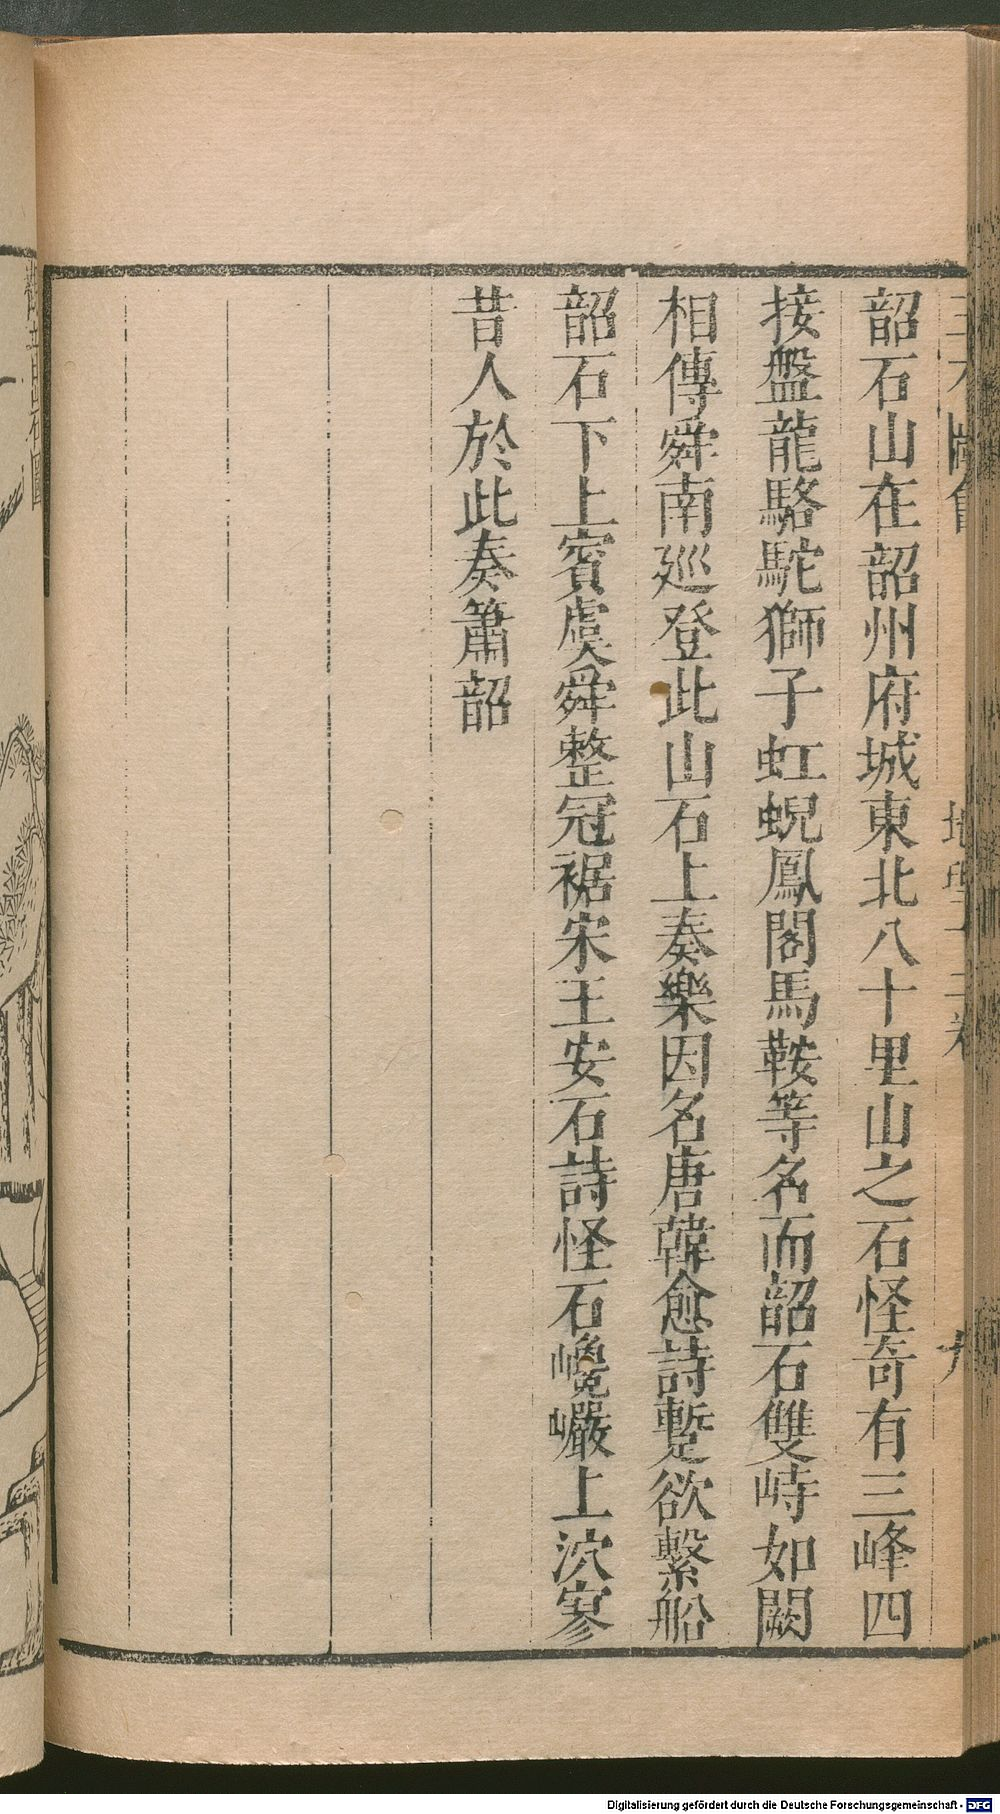 韶石山在韶州府城東北八十里山之石怪奇有三峰四
接盤龍駱駝獅子虹蜺鳳閣馬鞍等名而韶石雙峙如闕
相傳舜南巡登此山石上奏樂因名唐韓愈詩蹔欲繫船
韶石下上賓虞舜整冠裾宋王安石詩怪石巉巗上泬寥
昔人於此奏簫韶
Digitalisierung gefördert durch die Deutsche Forschungsgemeinschaft - DFG